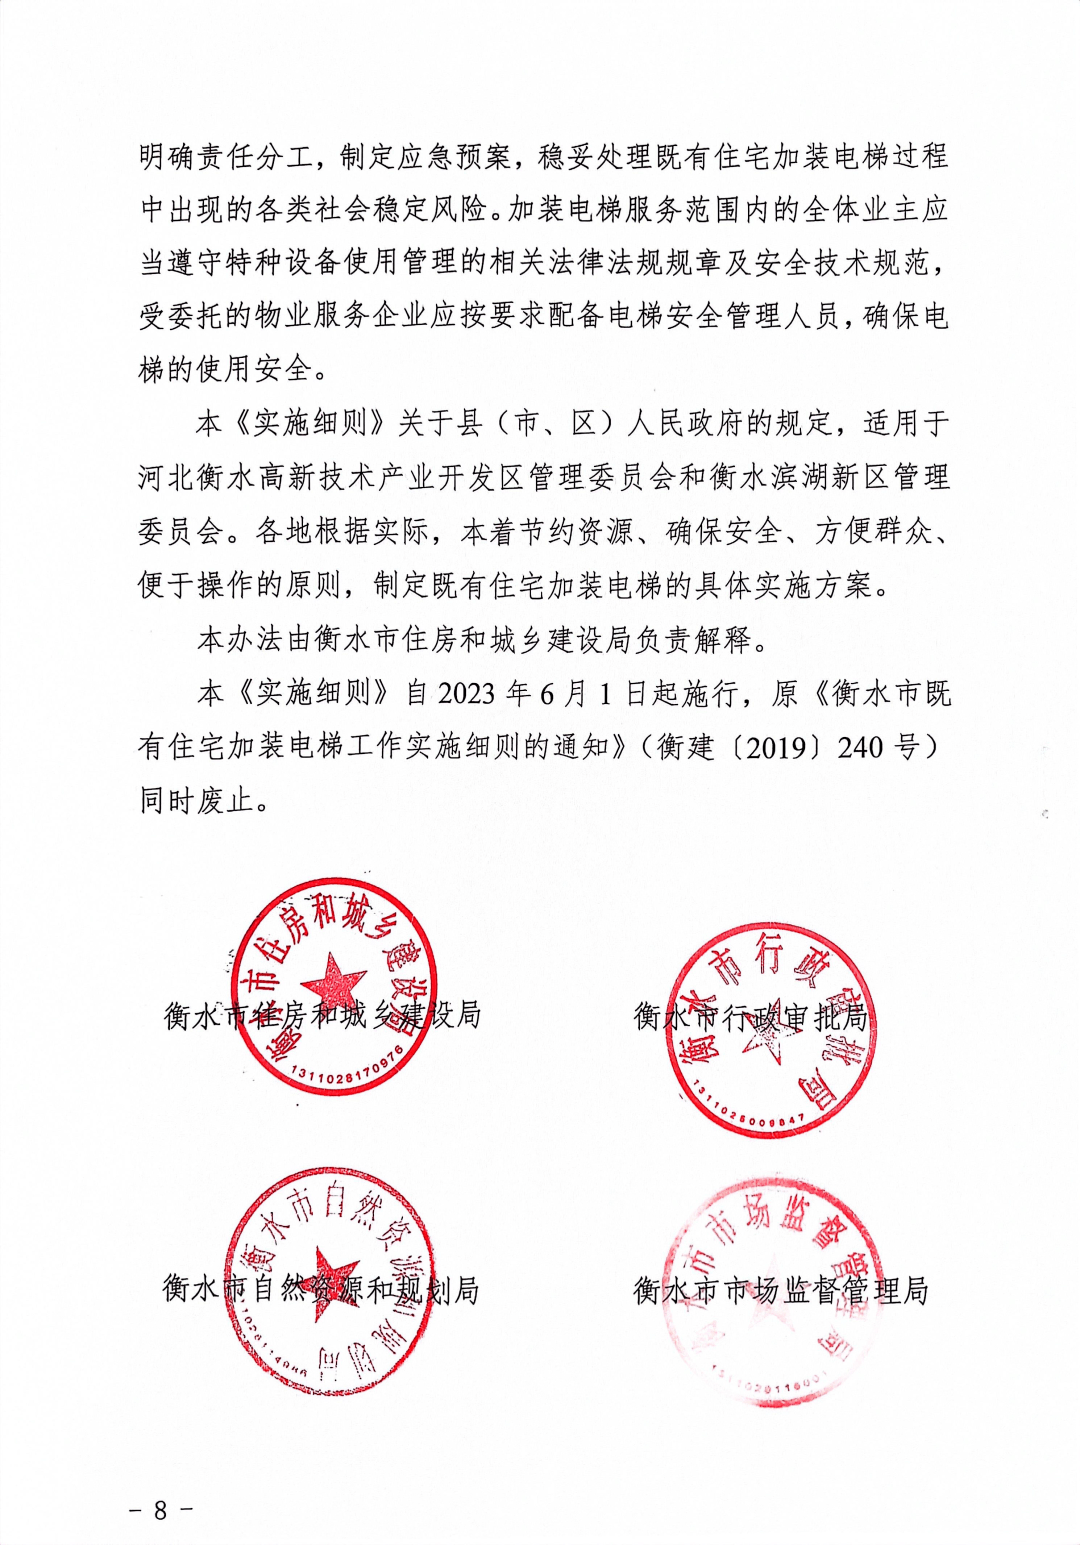 明确责任分工，制定应急预案，稳妥处理既有住宅加装电梯过程
中出现的各类社会稳定风险。加装电梯服务范围内的全体业主应
当遵守特种设备使用管理的相关法律法规规章及安全技术规范，
受委托的物业服务企业应按要求配备电梯安全管理人员，确保电
梯的使用安全。
本《实施细则》关于县（市、区）人民政府的规定，适用于
河北衡水高新技术产业开发区管理委员会和衡水滨湖新区管理
委员会。各地根据实际，本着节约资源、确保安全、方便群众、
便于操作的原则，制定既有住宅加装电梯的具体实施方案。
本办法由衡水市住房和城乡建设局负责解释。
本《实施细则》自 2023 年 6 月 1 日起施行，原《衡水市既
有住宅加装电梯工作实施细则的通知》（衡建〔2019〕240 号）
同时废止。
衡水市住房和城乡建设局
衡水市住房和城乡建设局
1311028170976
衡水市行政审批局
衡水市行政审批局
衡水市自然资源和规划局
衡水市自然资源和规划局
衡水市市场监督管理局
衡水市市场监督管理局
- 8 -